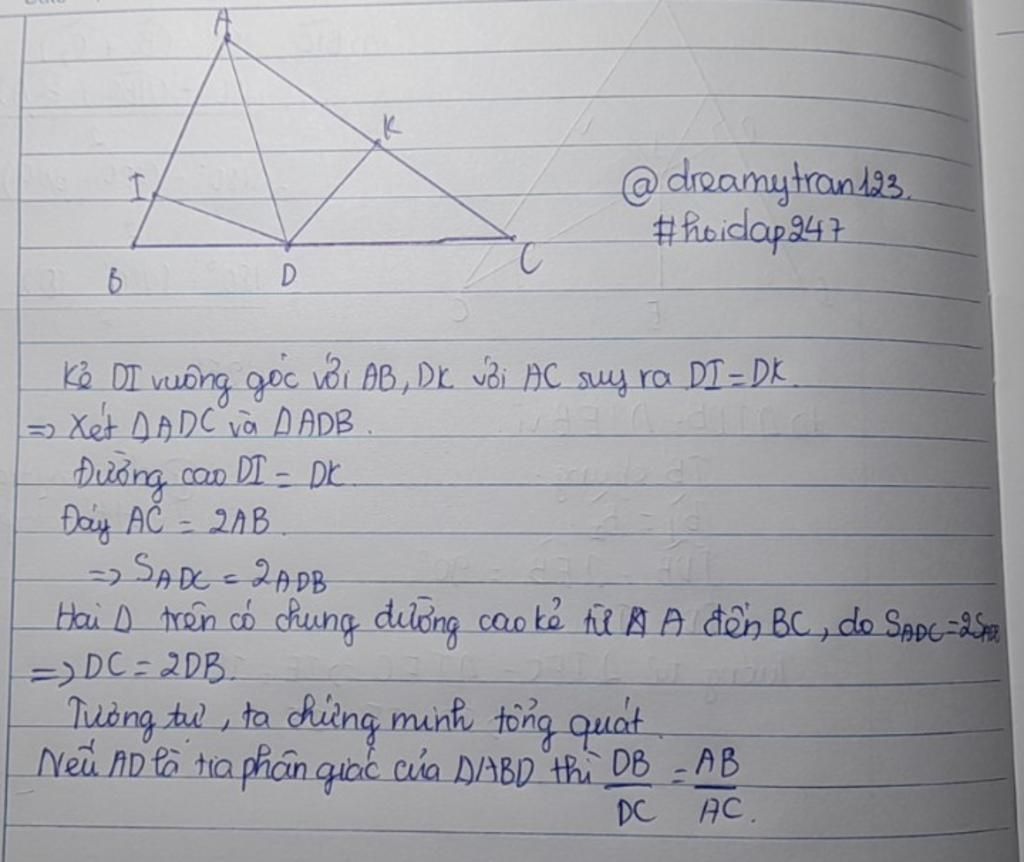 A
K
I
@dreamytran123.
#hoidap247
B
D
C
Kẻ DI vuông góc với AB, DK với AC suy ra DI = DK.
=> Xét ΔADC và ΔADB.
Đường cao DI = DK.
Đáy AC = 2AB.
=> SADC = 2ADB
Hai Δ trên có chung đường cao kẻ từ A đến BC, do SADC = 2SADB
=> DC = 2DB.
Tương tự, ta chứng minh tổng quát.
Nếu AD là tia phân giác của ΔABD thì DB/DC = AB/AC.